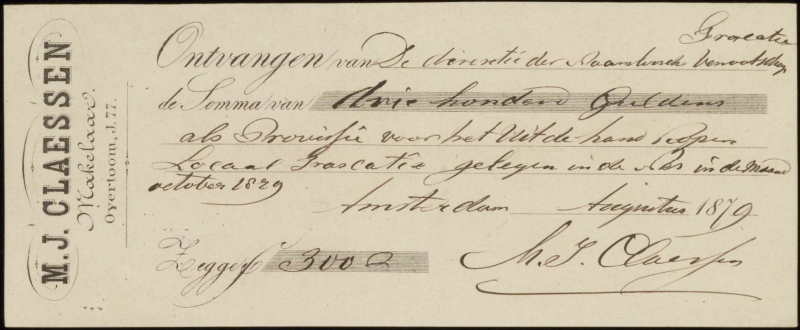 M. J. CLAESSEN
Makelaar.
Overtoom, J.77.
Frascatie
Ontvangen van De directie der Naamlooze Vennootschap
de Somma van drie honderd Guldens
als Provisie voor het Uit de hand kopen
Locaal Frascatie gelegen in de Nes in de Maand
october 1829
Amsterdam Augustus 1879
Zegge ƒ 300
M. J. Claessen